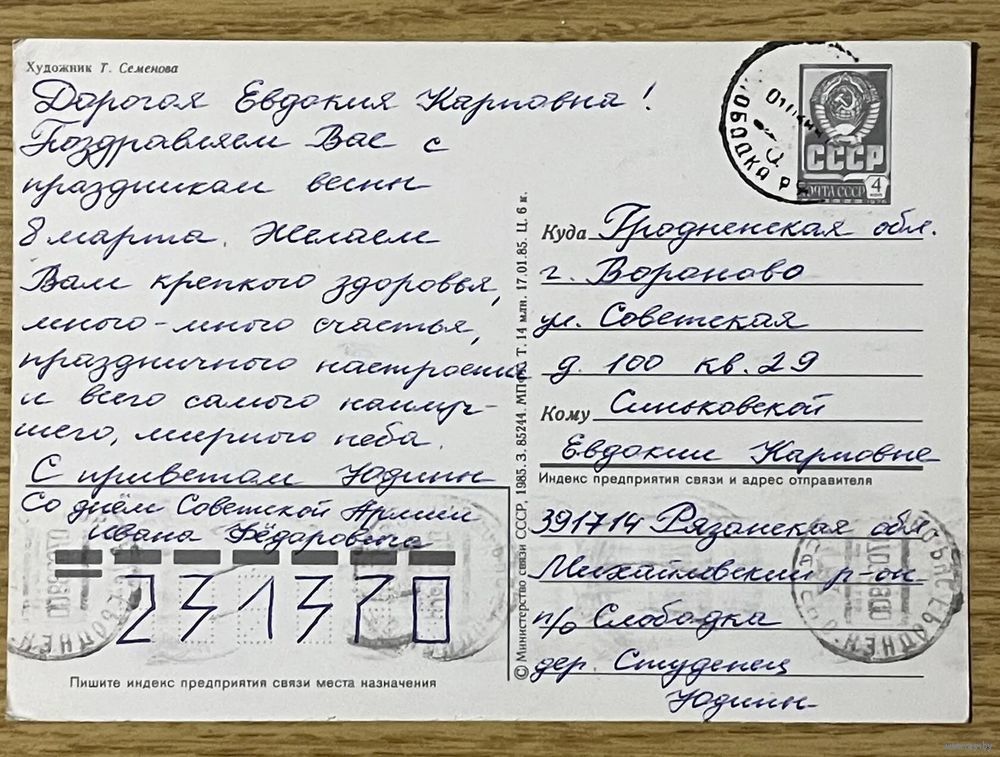 Художник Т. Семенова
Дорогая Евдокия Карповна!
Поздравляем Вас с
праздником весны
8 марта. Желаем
Вам крепкого здоровья,
много-много счастья,
праздничного настроения
и всего самого наилуч-
шего, мирного неба.
С приветом Юдины
Со днём Советской Армии
Ивана Фёдоровича
231370
Пишите индекс предприятия связи места назначения
© Министерство связи СССР, 1985. З. 85244. МПФГ. Т. 14 млн. 17.01.85. Ц. 6 к.
СССР
ПОЧТА СССР
4
1976
Куда Гродненская обл.
г. Вороново
ул. Советская
д. 100 кв. 29
Кому Синьковской
Евдокии Карповне
Индекс предприятия связи и адрес отправителя
391714 Рязанская обл
Михайловский р-он
п/о Слободка
дер. Студенец
Юдины